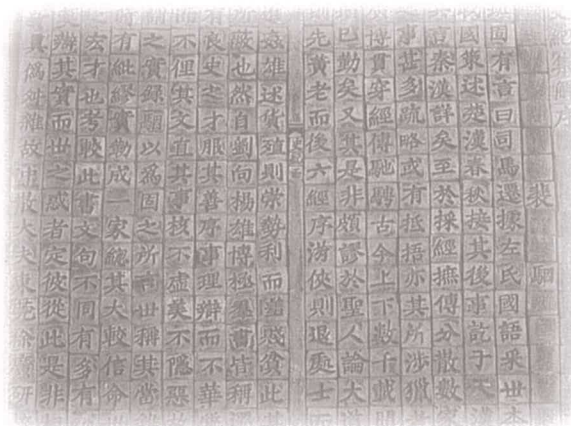 裴駰
固有言曰司馬遷據左氏國語采世本
國策述楚漢春秋接其後事訖于天漢
言秦漢詳矣至於採經摭傳分散數家
事甚多疏略或有抵捂亦其所涉獵者
博貫穿經傳馳騁古今上下數千載間
已勤矣又其是非頗謬於聖人論大道
先黃老而後六經序游俠則退處士而
進姦雄述貨殖則崇勢利而羞賤貧此其
所蔽也然自劉向楊雄博極羣書皆稱遷
有良史之才服其善序事理辯而不華
而不俚其文直其事核不虛美不隱惡故
謂之實錄駰以為固之所言世稱其當
時有紕繆實勒成一家總其大較信命
之宏才也考較此書文句不同有多有
辯其實而世之惑者定彼從此是非相
真偽舛雜故中散大夫東莞徐廣研